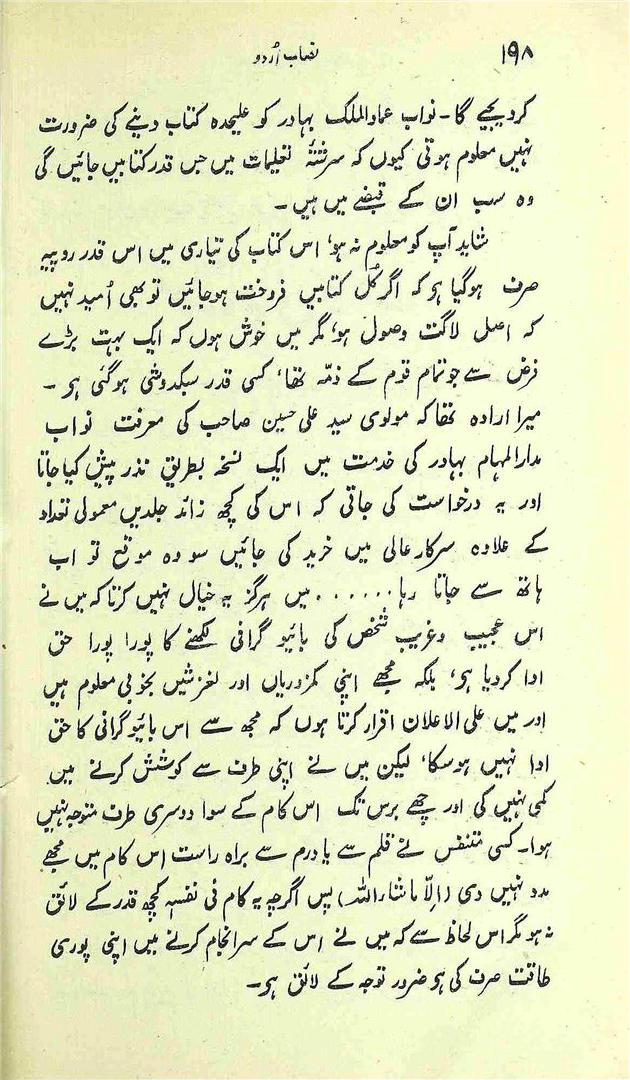 ۱۹۸ نصاب اُردو
کردیجیے گا۔ نواب عماد الملک بہادر کو علیحدہ کتاب دینے کی ضرورت
نہیں معلوم ہوتی کیوں کہ سررشتۂ تعلیمات میں جس قدر کتابیں جائیں گی
وہ سب ان کے قبضے میں ہیں۔
شاید آپ کو معلوم نہ ہو، اس کتاب کی تیاری میں اس قدر روپیہ
صرف ہوگیا ہی کہ اگر کُل کتابیں فروخت ہوجائیں تو بھی اُمید نہیں
کہ اصل لاگت وصول ہو، مگر میں خوش ہوں کہ ایک بہت بڑے
فرض سے جو تمام قوم کے ذمّہ تھا، کسی قدر سبکدوشی ہوگئی ہی۔
میرا ارادہ تھا کہ مولوی سید علی حسین صاحب کی معرفت نواب
مدارالمہام بہادر کی خدمت میں ایک نسخہ بطریق نذر پیش کیا جاتا
اور یہ درخواست کی جاتی کہ اس کی کچھ زائد جلدیں معمولی تعداد
کے علاوہ سرکار عالی میں خرید کی جائیں سو وہ موقع تو اب
ہاتھ سے جاتا رہا...... میں ہرگز یہ خیال نہیں کرتا کہ میں نے
اس عجیب و غریب شخص کی بائیو گرافی لکھنے کا پورا پورا حق
ادا کردیا ہی، بلکہ مجھے اپنی کمزوریاں اور لغزشیں بخوبی معلوم ہیں
اور میں علی الاعلان اقرار کرتا ہوں کہ مجھ سے اس بائیو گرافی کا حق
ادا نہیں ہوسکا، لیکن میں نے اپنی طرف سے کوشش کرنے میں
کمی نہیں کی اور چھے برس تک اس کام کے سوا دوسری طرف متوجہ نہیں
ہوا۔ کسی متنفس نے قلم سے یا درم سے براہ راست اس کام میں مجھے
مدد نہیں دی (اِلّا ماشاء اللہ) پس اگرچہ یہ کام فی نفسہٖ کچھ قدر کے لائق
نہ ہو مگر اس لحاظ سے کہ میں نے اس کے سرانجام کرنے میں اپنی پوری
طاقت صرف کی ہو ضرور توجہ کے لائق ہو۔